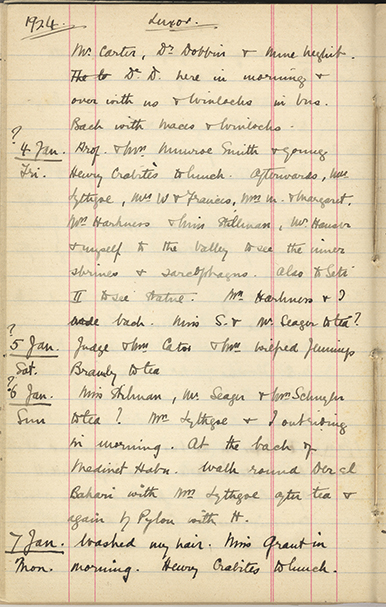 1924. Luxor.
Mr. Carter, Dr. Dobbin & mme neglist.
The to Dr. D. here in morning &
over with us & Winlocks in bus.
Back with Maces & Winlocks.
?
4 Jan. Prof. & Mrs Munroe Smith & young
Fri. Henry Crabites to lunch. Afterwards, Mrs
Lythgoe, Mrs W & Frances, Mrs M. & Margaret,
Mrs Harkness & Miss Stillman, Mr Hauser
& myself to the Valley to see the inner
shrines & sarcophagus. Also to Seti
II to see statue. Mrs Harkness & I
back. Miss S. & Mr Seager to tea?
?
5 Jan. Judge & Mrs Cator & Mrs Wilfred Jennings
Sat. Bramly to tea
?
6 Jan. Miss Stillman, Mr Seager & Mrs Schuyler
Sun to tea? Mrs Lythgoe & I out riding
in morning. At the back of
Madinet Habu. Walk round Der el
Bahari with Mrs Lythgoe after tea &
again by Pylon with H.
7 Jan. Washed my hair. Miss Grant in
Mon. morning. Henry Crabites to lunch.